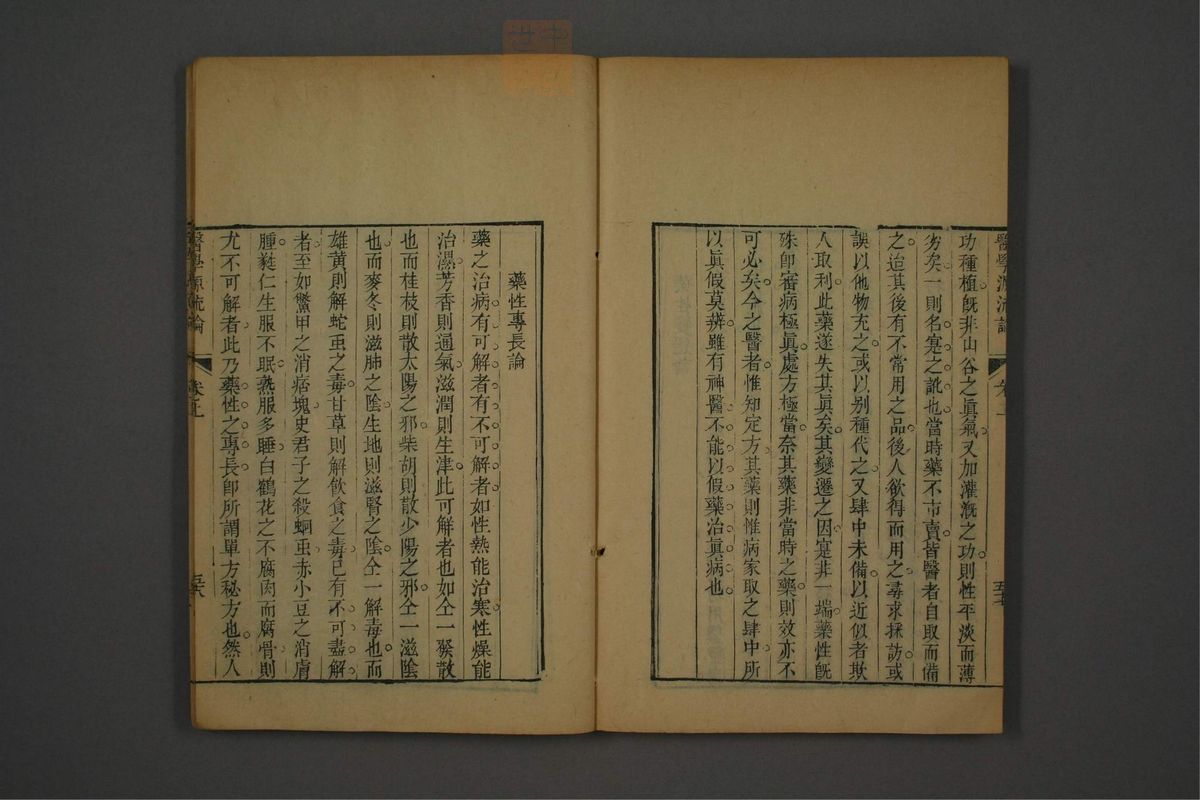 醫學源流論
功種植旣非山谷之眞氣又加灌漑之功則性平淡而薄
劣矣一則名寔之訛也當時藥不市賣皆醫者自取而備
之迨其後有不常用之品後人欲得而用之尋求採訪或
誤以他物充之或以別種代之又肆中未備以近似者欺
人取利此藥遂失其眞矣其變遷之因寔非一端藥性旣
殊卽審病極眞處方極當奈其藥非當時之藥則效亦不
可必矣今之醫者惟知定方其藥則惟病家取之肆中所
以眞假莫辨雖有神醫不能以假藥治眞病也
藥性專長論
藥之治病有可解者有不可解者如性熱能治寒性燥能
治濕芳香則通氣滋潤則生津此可解者也如仝一發散
也而桂枝則散太陽之邪柴胡則散少陽之邪仝一滋陰
也而麥冬則滋肺之陰生地則滋腎之陰仝一解毒也而
雄黄則解蛇虫之毒甘草則解飮食之毒已有不可盡解
者至如鱉甲之消痞塊史君子之殺蛔虫赤小豆之消膚
腫蕤仁生服不眠熟服多睡白鶴花之不腐肉而腐骨則
尤不可解者此乃藥性之專長卽所謂單方秘方也然人
醫學源流論
卷上